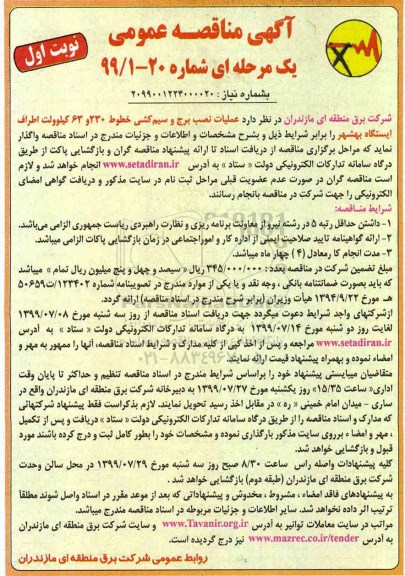 آگهی مناقصه عمومی
نوبت اول
یک مرحله ای شماره ۲۰-۹۹/۱
بشماره نیاز : ۲۰۹۹۰۰۱۲۲۴۰۰۰۰۲۰
شرکت برق منطقه ای مازندران در نظر دارد عملیات نصب برج و سیم‌کشی خطوط ۲۳۰و ۶۳ کیلوولت اطراف
ایستگاه بهشهر را برابر شرایط ذیل و بشرح مشخصات و اطلاعات و جزئیات مندرج در اسناد مناقصه واگذار
نماید که مراحل برگزاری مناقصه از دریافت اسناد تا ارائه پیشنهاد مناقصه گران و بازگشایی پاکت از طریق
درگاه سامانه تدارکات الکترونیکی دولت « ستاد » به آدرس www.setadiran.ir انجام خواهد شد و لازم
است مناقصه گران در صورت عدم عضویت قبلی مراحل ثبت نام در سایت مذکور و دریافت گواهی امضای
الکترونیکی را جهت شرکت در مناقصه بانجام رسانند.
شرایط مناقصه:
۱- داشتن حداقل رتبه ۵ در رشته نیرو از معاونت برنامه ریزی و نظارت راهبردی ریاست جمهوری الزامی می‌باشد.
۲- ارائه گواهینامه تایید صلاحیت ایمنی از اداره کار و اموراجتماعی در زمان بازگشایی پاکات الزامی میباشد.
۳- مدت انجام کا رمعادل (۴) چهار ماه میباشد.
مبلغ تضمین شرکت در مناقصه بعدد: ۳۴۵/۰۰۰/۰۰۰ ریال « سیصد و چهل و پنج میلیون ریال تمام » میباشد
که باید بصورت ضمانتنامه بانکی ، وجه نقد و یا یکی از موارد مندرج در تصویبنامه شماره ۱۲۳۴۰۲/ت۵۰۶۵۹
هـ مورخ ۱۳۹۴/۹/۲۲ هیأت وزیران (برابر شرح مندرج در اسناد مناقصه) ارائه گردد.
ازشرکتهای واجد شرایط دعوت میگردد جهت دریافت اسناد مناقصه از روز سه شنبه مورخ ۱۳۹۹/۰۷/۰۸
لغایت روز دو شنبه مورخ ۱۳۹۹/۰۷/۱۴ به درگاه سامانه تدارکات الکترونیکی دولت « ستاد » به آدرس
www.setadiran.ir مراجعه و پس از اخذ کپی از کلیه مدارک و شرایط اسناد مناقصه، آنها را ممهور به مهر و
امضاء نموده و بهمراه پیشنهاد قیمت ارائه نمایند.
متقاضیان میبایستی پیشنهاد خود را براساس شرایط مندرج در اسناد مناقصه تنظیم و حداکثر تا پایان وقت
اداری« ساعت ۱۵/۳۵» روز یکشنبه مورخ ۱۳۹۹/۰۷/۲۷ به دبیرخانه شرکت برق منطقه ای مازندران واقع در
ساری – میدان امام خمینی « ره » در مقابل اخذ رسید تحویل نمایند. لازم بذکراست فقط پیشنهاد شرکتهائی
که مدارک و اسناد مناقصه را از طریق درگاه سامانه تدارکات الکترونیکی دولت « ستاد » دریافت و پس از تکمیل
، مهر و امضاء برروی سایت مذکور بارگذاری نموده و مشخصات خود را بطور کامل ثبت و درج کرده باشند مورد
قبول و بازگشایی خواهد شد.
کلیه پیشنهادات واصله راس ساعت ۸/۳۰ صبح روز سه شنبه مورخ ۱۳۹۹/۰۷/۲۹ در محل سالن وحدت
شرکت برق منطقه ای مازندران (طبقه دوم) بازگشایی خواهد شد .
به پیشنهادهای فاقد امضاء ، مشروط ، مخدوش و پیشنهاداتی که بعد از موعد مقرر در اسناد واصل شوند مطلقاً
ترتیب اثر داده نخواهد شد. سایر اطلاعات و جزئیات مربوطه در اسناد مناقصه مندرج میباشد.
مراتب در سایت معاملات توانیر به آدرس www.Tavanir.org.ir و سایت شرکت برق منطقه ای مازندران
به آدرس www.mazrec.co.ir/tender نیز درج گردیده است.
روابط عمومی شرکت برق منطقه ای مازندران